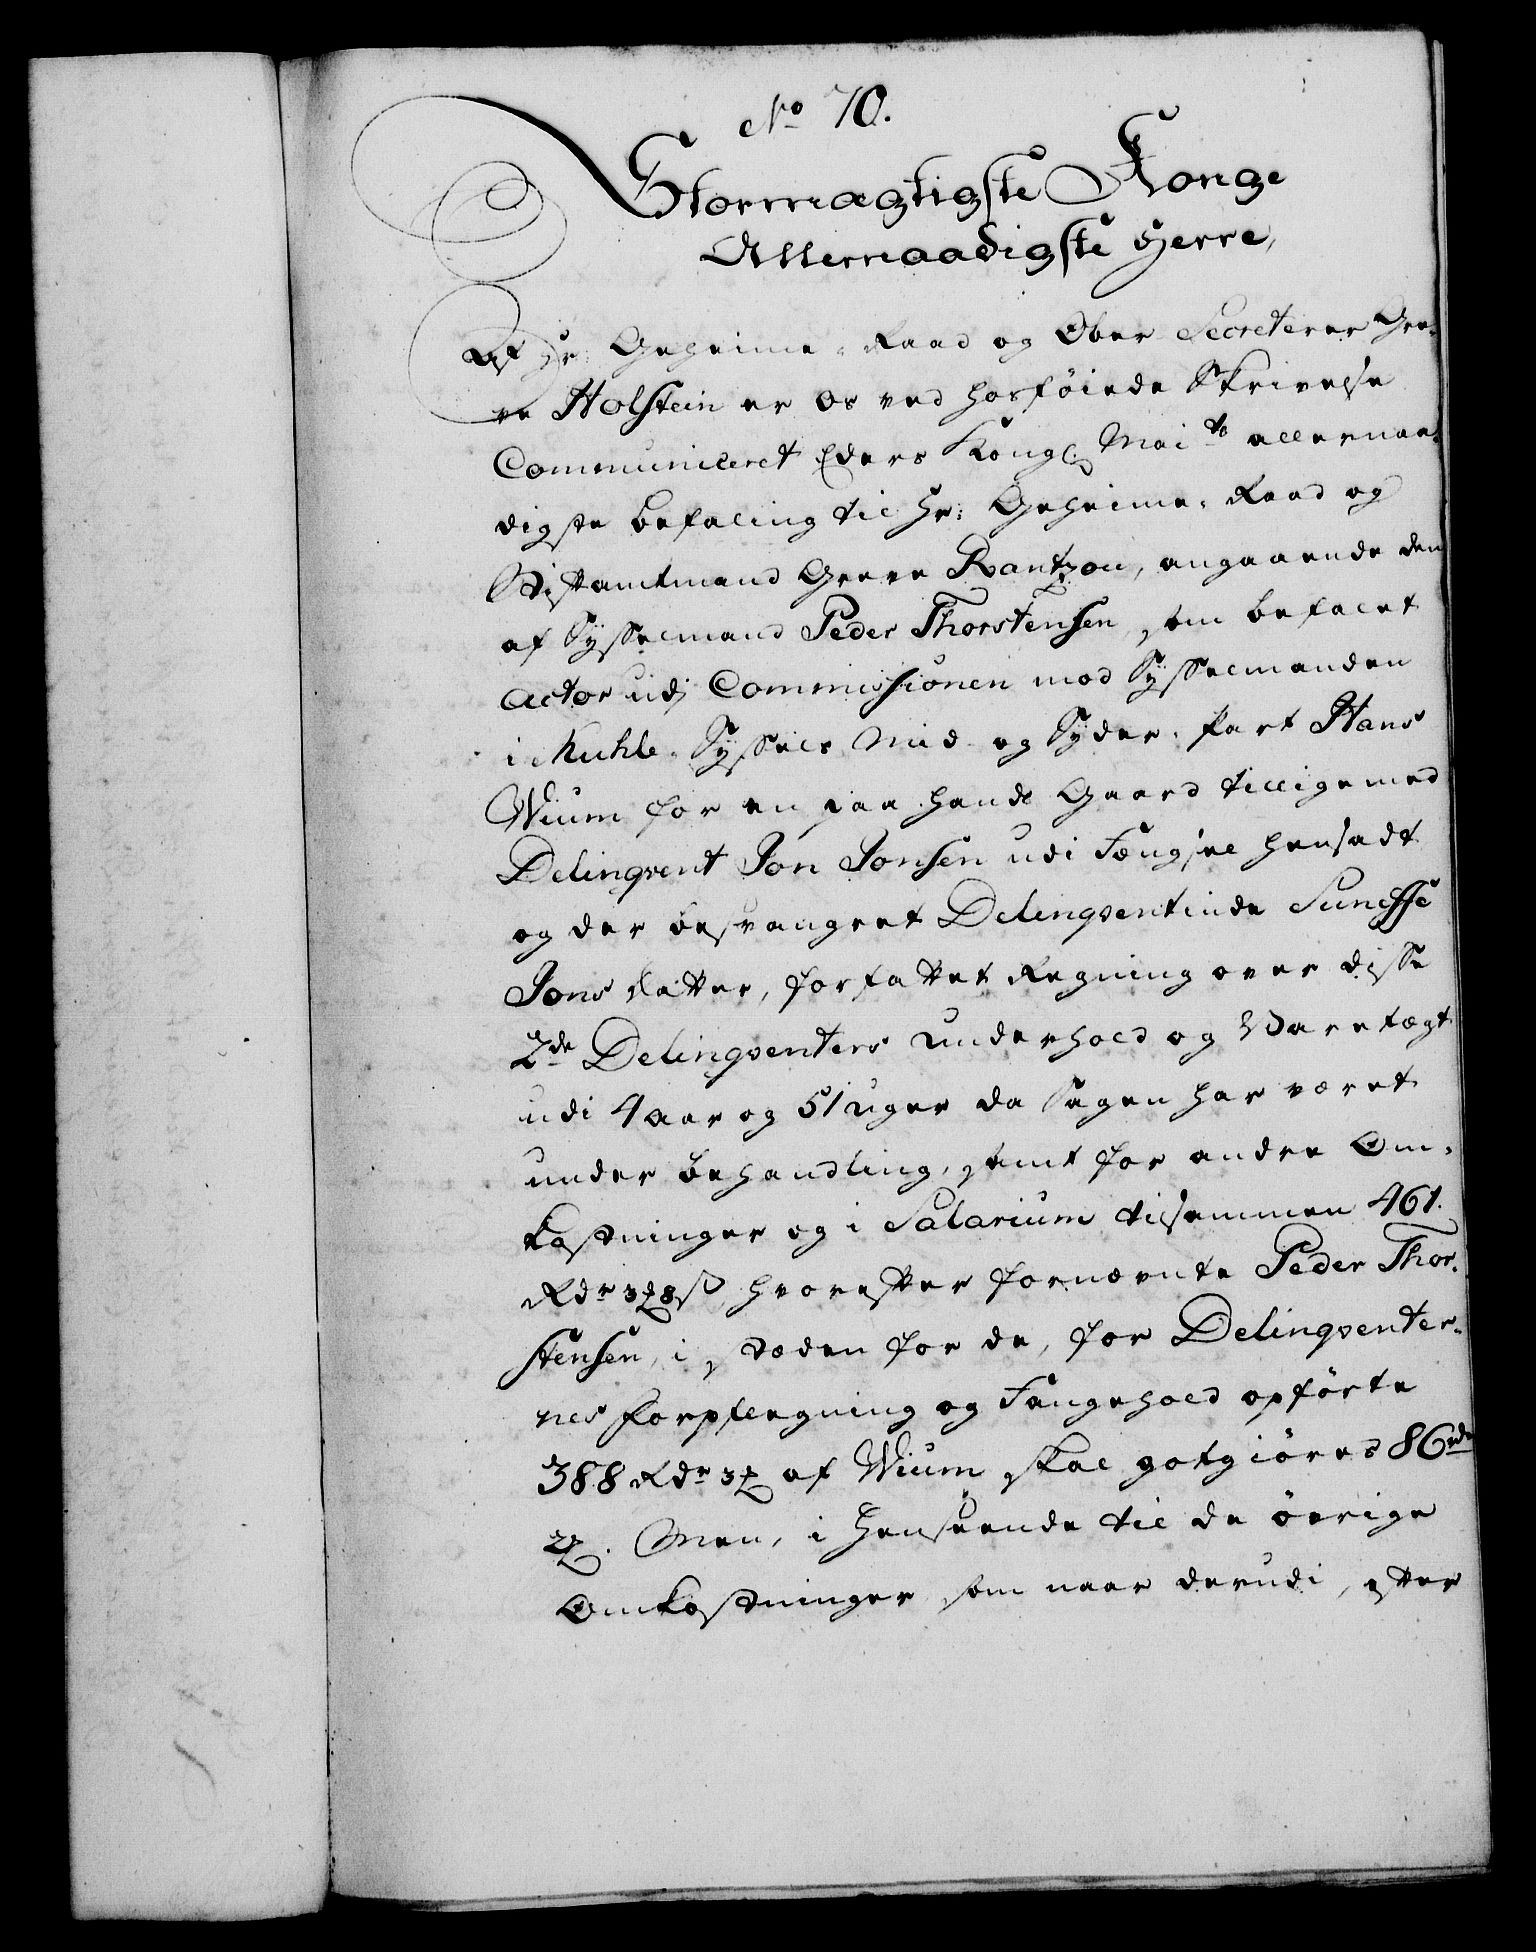 No 70.
Stormægtigste Konge
Allernaadigste Herre,
Af Hr. Geheime-Raad og Ober Secreterer Gre-
ve Holstein er os ved hosföiede Skrivelse
Communiceret Eders Kongl. Maits allernaa-
digste befaling til Hr: Geheime-Raad og
Stiftamtmand Greve Rantzou, angaaende den
af Sysselmand Peder Thorstensen, som befalet
Actor udj Commissionen mod Sysselmanden
i Muhle-Syssels Mid- og Syder-Part Hans
Wium for en paa hands Gaard tilligemed
Delinqvent Jon Jonsen udi Fængsel hensadt
og der besvangret Delinqventinde Suneffe
Jons datter, forfattet Regning over disse
2de Delinqventers underhold og Varetægt
udi 4 aar og 51 uger da Sagen har været
under behandling, samt for andre Om-
kostninger og i Salarium tilsammen 461.
Rdr 3 8 s, hvorefter fornævnte Peder Thor-
stensen, i stæden for de, for Delinqventer-
nes Forpleegning og Fangehold opförte
388 Rdr 3 af Wium skal godtgiöres 86 rdr
2. Men, i henseende til de övrige
Omkostninger som naar derudi, efter